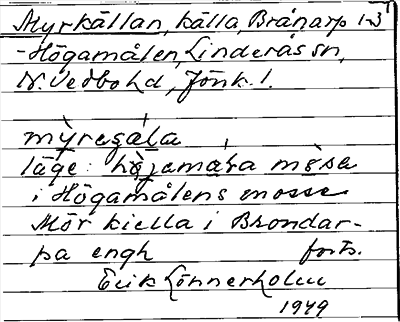 Myrkällan, källa, Brånarp 1-3
-Högamålen, Linderås sn,
N. Vedbo hd, Jönk. l.
mỳrasạ́la
läge: hö̀jamạ́ra mö̀sa
i Högamålens mosse
Mör kiella i Brondar-
pa engh forts.
Erik Lönnerholm
1949